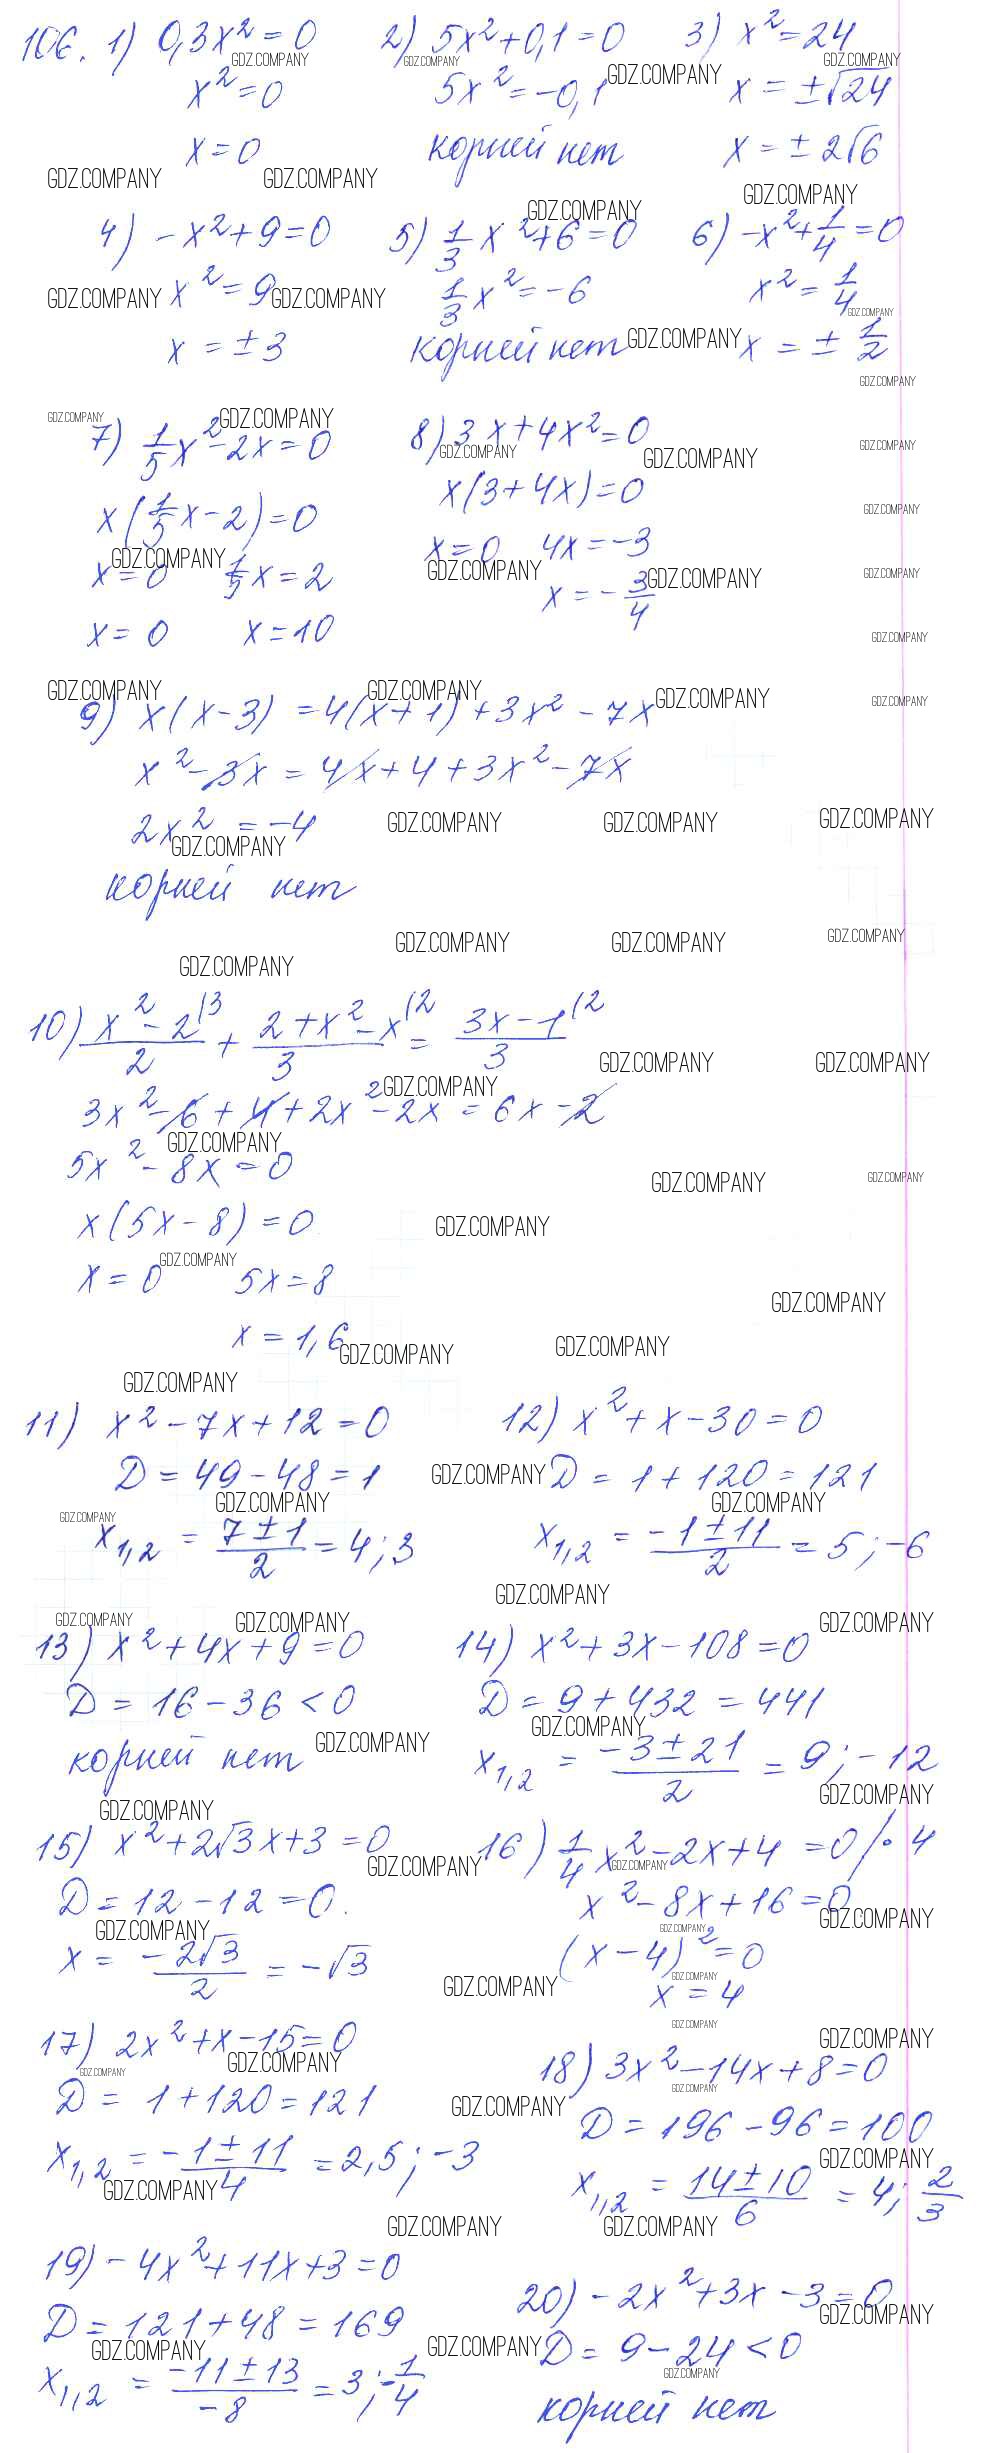 106. 1) 0,3x² = 0
x² = 0
x = 0
2) 5x² + 0,1 = 0
5x² = -0,1
корней нет
3) x² = 24
x = ±√24
x = ±2√6
4) -x² + 9 = 0
x² = 9
x = ±3
5) 1/3 x² + 6 = 0
1/3 x² = -6
корней нет
6) -x² + 1/4 = 0
x² = 1/4
x = ± 1/2
7) 1/5 x² - 2x = 0
x(1/5 x - 2) = 0
x = 0 1/5 x = 2
x = 0 x = 10
8) 3x + 4x² = 0
x(3 + 4x) = 0
x = 0 4x = -3
x = - 3/4
9) x(x - 3) = 4(x + 1) + 3x² - 7x
x² - 3x = 4x + 4 + 3x² - 7x
2x² = -4
корней нет
10) (x² - 2)/2 (3 + (2 + x² - x)/3 (2 = (3x - 1)/3 (2
3x² - 6 + 4 + 2x² - 2x = 6x - 2
5x² - 8x = 0
x(5x - 8) = 0
x = 0 5x = 8
x = 1,6
11) x² - 7x + 12 = 0
D = 49 - 48 = 1
x1,2 = (7 ± 1)/2 = 4; 3
12) x² + x - 30 = 0
D = 1 + 120 = 121
x1,2 = (-1 ± 11)/2 = 5; -6
13) x² + 4x + 9 = 0
D = 16 - 36 < 0
корней нет
14) x² + 3x - 108 = 0
D = 9 + 432 = 441
x1,2 = (-3 ± 21)/2 = 9; -12
15) x² + 2√3x + 3 = 0
D = 12 - 12 = 0.
x = (-2√3)/2 = -√3
16) 1/4 x² - 2x + 4 = 0 /· 4
x² - 8x + 16 = 0
(x - 4)² = 0
x = 4
17) 2x² + x - 15 = 0
D = 1 + 120 = 121
x1,2 = (-1 ± 11)/4 = 2,5; -3
18) 3x² - 14x + 8 = 0
D = 196 - 96 = 100
x1,2 = (14 ± 10)/6 = 4; 2/3
19) -4x² + 11x + 3 = 0
D = 121 + 48 = 169
x1,2 = (-11 ± 13)/-8 = 3; -1/4
20) -2x² + 3x - 3 = 0
D = 9 - 24 < 0
корней нет
GDZ.COMPANY